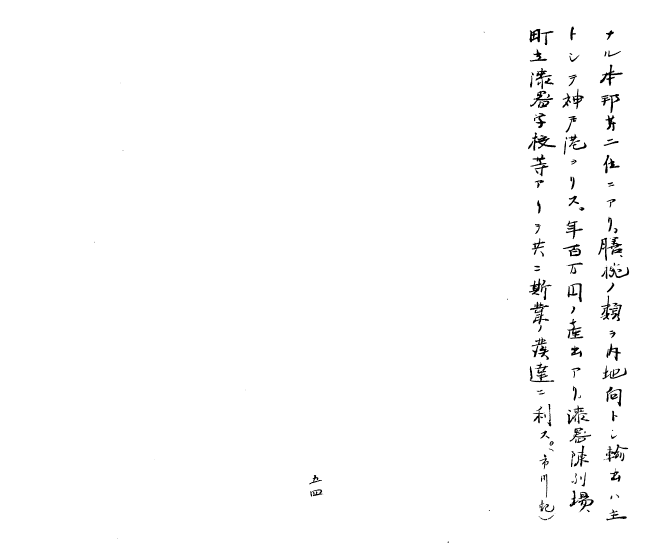 ナル本邦第二位ニアリ。膳椀ノ類ヲ内地向トシ輸出ハ主
トシテ神戸港ヨリス。年百万円ノ産出アリ。漆器陳列場、
町立漆器学校等アリテ共ニ斯業ノ発達ニ利ス。(市川記)
五四